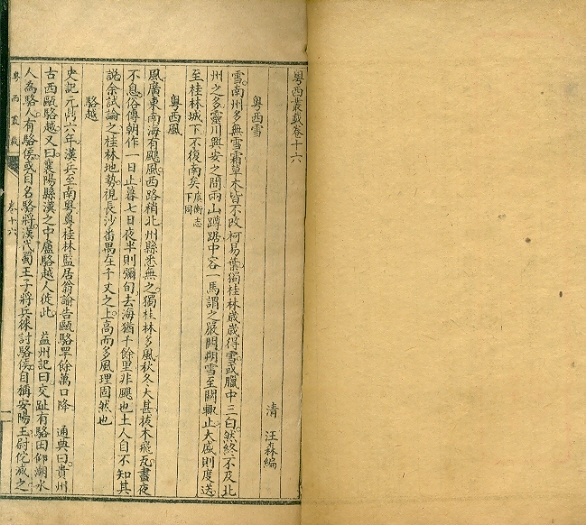 粵西叢載卷十六
清 汪森編
粵西雪
雪南州多無雪霜草木皆不改柯易葉獨桂林歲歲得雪或臘中三白然終不及北
州之多靈川興安之間兩山蹲踞中容一馬謂之嚴關朔雪至關輒止大盛則度送
至桂林城下不復南矣虞衡志下同
粵西風
風廣東南海有颶風西路稍北州縣悉無之獨桂林多風秋冬大甚拔木飛瓦晝夜
不息俗傳朝作一日止暮七日夜半則彌旬去海猶千餘里非颶也土人自不知其
說余試論之桂林地勢視長沙番禺在千丈之上高而多風理固然也
駱越
史記元鼎六年漢兵至南粵粵桂林監居翁諭告甌駱四十餘萬口降 通典曰貴州
古西甌駱越又曰襄陽縣漢之中廬駱越人徙此 益州記曰交趾有駱田仰潮水
人為駱人有駱侯或自名駱將漢代蜀王子將兵徠討駱侯自稱安陽王尉佗滅之
粵西叢載
卷十六